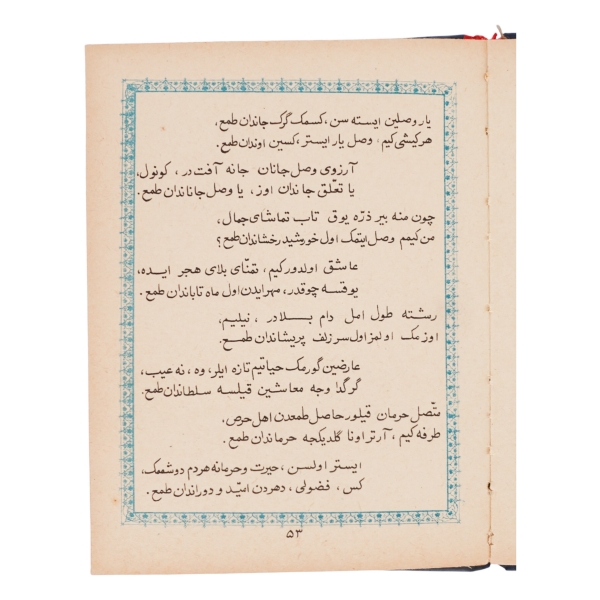 یار وصلین ایسته سن، کسمک گرک جاندان طمع،
هرکیشی کیم، وصل یار ایستر، کسین اوندان طمع.
آرزوی وصل جانان جانه آفت در، کونول،
یا تعلّق جاندان اوز، یا وصل جاناندان طمع.
چون منه بیر ذرّه یوق تاب تماشای جمال،
من کیمم وصل ایتمک اول خورشید رخشاندان طمع؟
عاشق اولدور کیم، تمنّای بلای هجر ایده،
یوقسه چوقدر، مهر ایدن اول ماه تاباندان طمع.
رشته طول امل دام بلادر، نیلیم،
اوزمک اولمز اول سر زلف پریشاندان طمع.
عارضین گورمک حیاتیم تازه ایلر، وه، نه عیب،
گرگدا وجه معاشین قیلسه سلطاندان طمع.
متّصل حرمان قیلور حاصل طمعدن اهل حرص،
طرفه کیم، آرتر اونا گلدیکجه حرماندان طمع.
ایستر اولسن، حیرت و حرمانه هردم دوشممک،
کس، فضولی، دهردن امیّد و دوراندان طمع.
۵۳